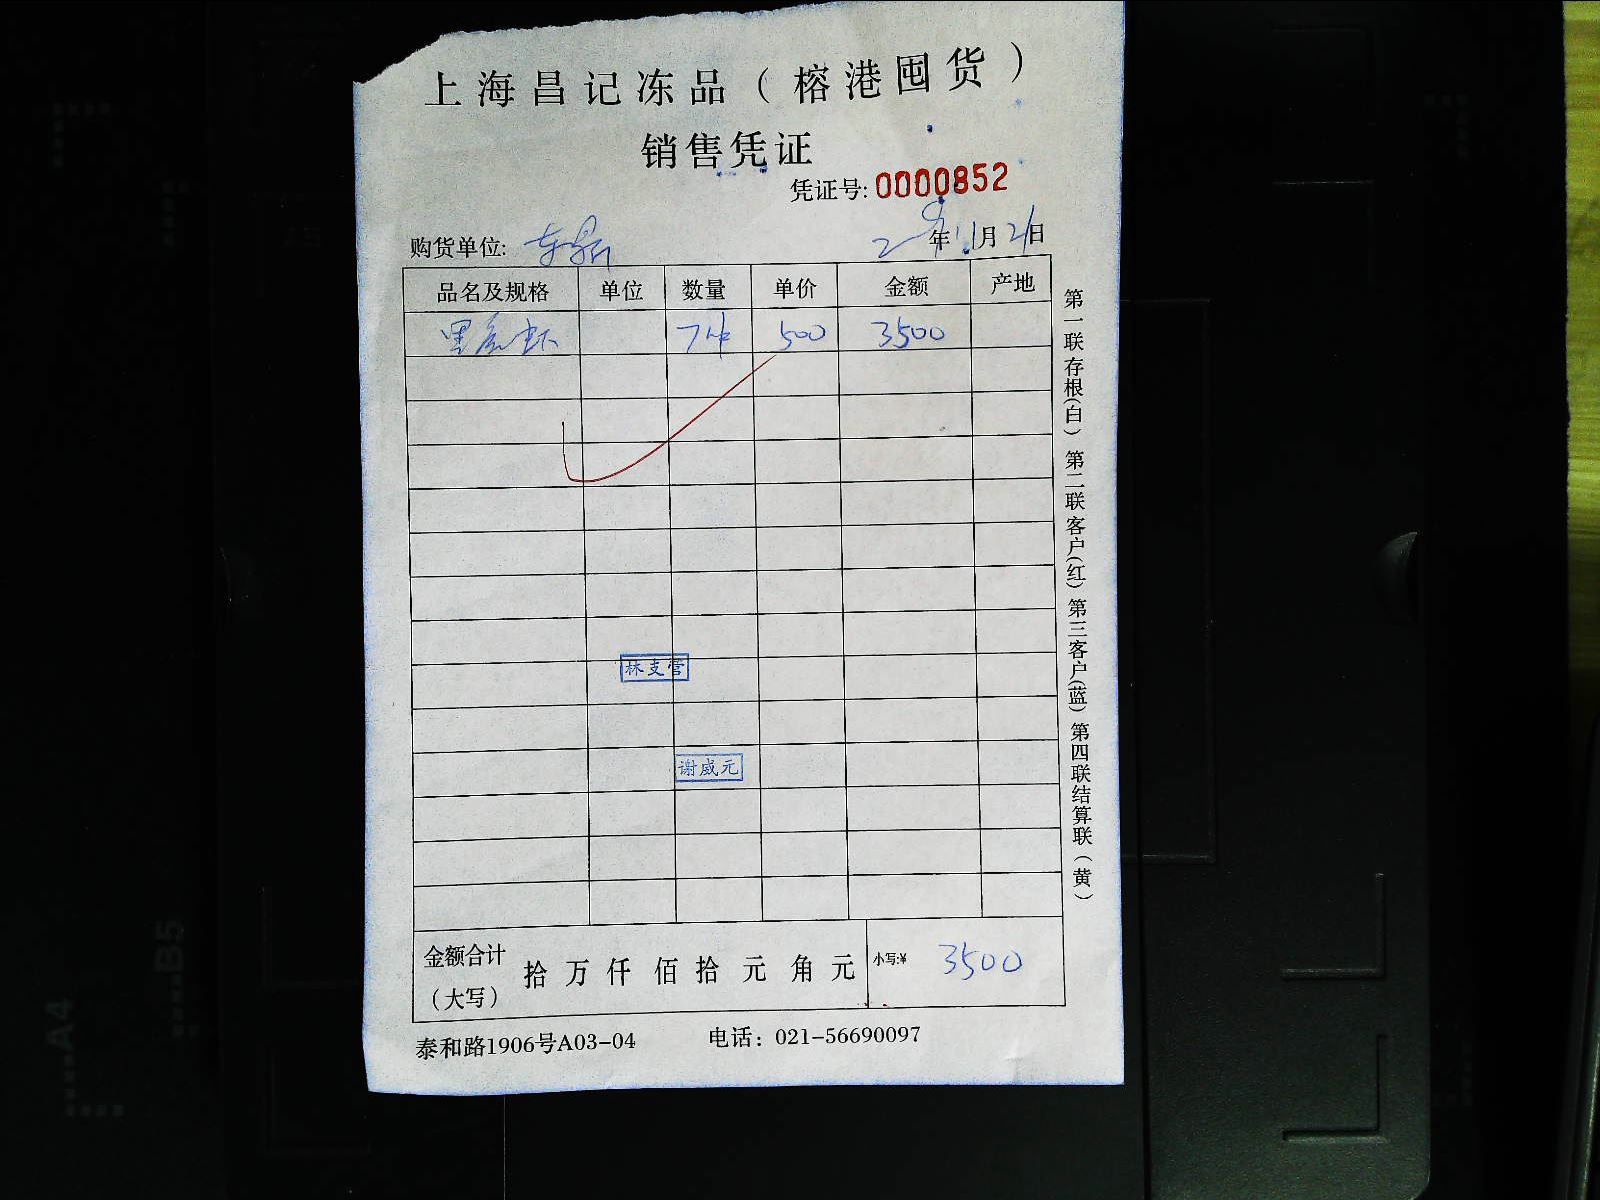 上海昌记冻品（榕港囤货）
销售凭证
凭证号: 0000852
购货单位: 年11月21日
品名及规格 单位 数量 单价 金额 产地
黑虎虾 7件 500 3500
林支营
谢威元
金额合计（大写） 拾 万 仟 佰 拾 元 角 元 小写:¥ 3500
泰和路1906号A03-04 电话：021-56690097
第一联存根(白) 第二联客户(红) 第三客户(蓝) 第四联结算联（黄）
A4
B5